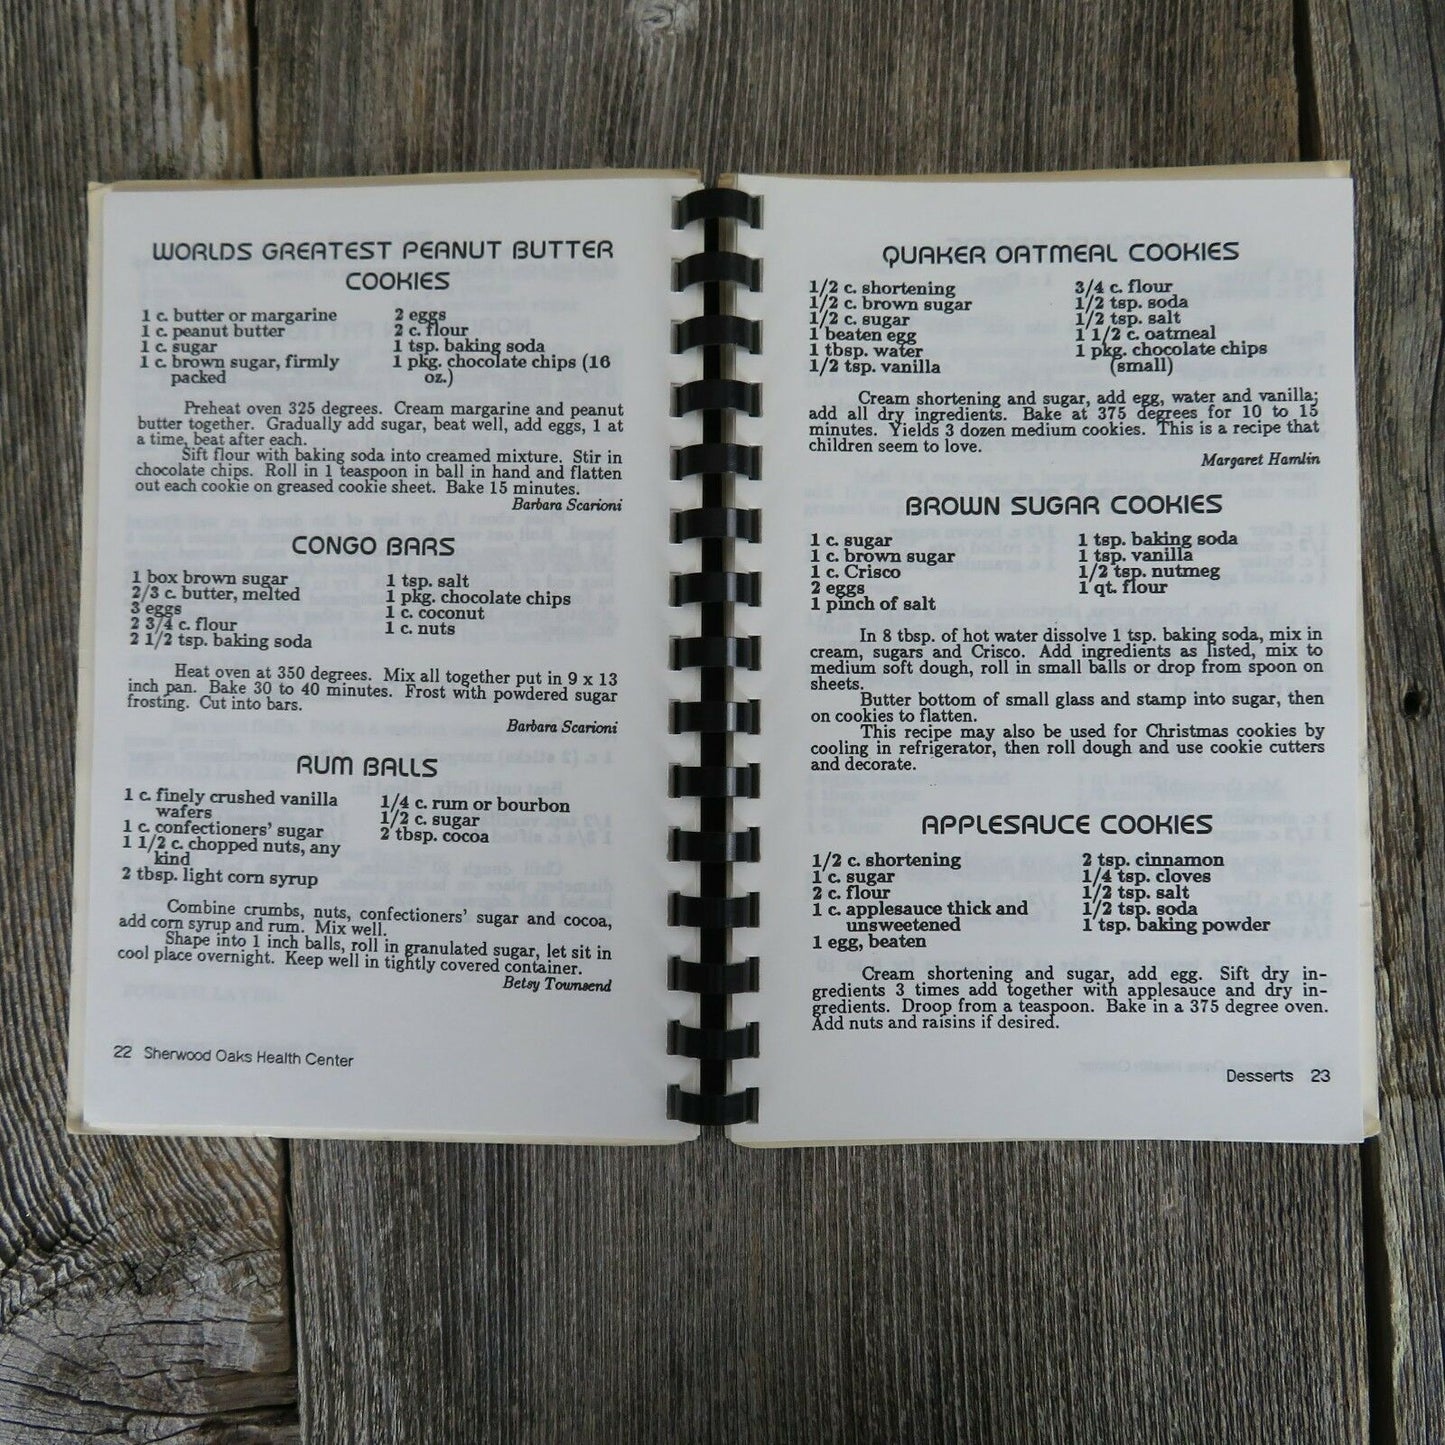 WORLDS GREATEST PEANUT BUTTER
COOKIES
1 c. butter or margarine
1 c. peanut butter
1 c. sugar
1 c. brown sugar, firmly
packed
2 eggs
2 c. flour
1 tsp. baking soda
1 pkg. chocolate chips (16
oz.)
Preheat oven 325 degrees. Cream margarine and peanut
butter together. Gradually add sugar, beat well, add eggs, 1 at
a time, beat after each.
Sift flour with baking soda into creamed mixture. Stir in
chocolate chips. Roll in 1 teaspoon in ball in hand and flatten
out each cookie on greased cookie sheet. Bake 15 minutes.
Barbara Scarioni
CONGO BARS
1 box brown sugar
2/3 c. butter, melted
3 eggs
2 3/4 c. flour
2 1/2 tsp. baking soda
1 tsp. salt
1 pkg. chocolate chips
1 c. coconut
1 c. nuts
Heat oven at 350 degrees. Mix all together put in 9 x 13
inch pan. Bake 30 to 40 minutes. Frost with powdered sugar
frosting. Cut into bars.
Barbara Scarioni
RUM BALLS
1 c. finely crushed vanilla
wafers
1 c. confectioners' sugar
1 1/2 c. chopped nuts, any
kind
2 tbsp. light corn syrup
1/4 c. rum or bourbon
1/2 c. sugar
2 tbsp. cocoa
Combine crumbs, nuts, confectioners' sugar and cocoa,
add corn syrup and rum. Mix well.
Shape into 1 inch balls, roll in granulated sugar, let sit in
cool place overnight. Keep well in tightly covered container.
Betsy Townsend
22 Sherwood Oaks Health Center
QUAKER OATMEAL COOKIES
1/2 c. shortening
1/2 c. brown sugar
1/2 c. sugar
1 beaten egg
1 tbsp. water
1/2 tsp. vanilla
3/4 c. flour
1/2 tsp. soda
1/2 tsp. salt
1 1/2 c. oatmeal
1 pkg. chocolate chips
(small)
Cream shortening and sugar, add egg, water and vanilla;
add all dry ingredients. Bake at 375 degrees for 10 to 15
minutes. Yields 3 dozen medium cookies. This is a recipe that
children seem to love.
Margaret Hamlin
BROWN SUGAR COOKIES
1 c. sugar
1 c. brown sugar
1 c. Crisco
2 eggs
1 pinch of salt
1 tsp. baking soda
1 tsp. vanilla
1/2 tsp. nutmeg
1 qt. flour
In 8 tbsp. of hot water dissolve 1 tsp. baking soda, mix in
cream, sugars and Crisco. Add ingredients as listed, mix to
medium soft dough, roll in small balls or drop from spoon on
sheets.
Butter bottom of small glass and stamp into sugar, then
on cookies to flatten.
This recipe may also be used for Christmas cookies by
cooling in refrigerator, then roll dough and use cookie cutters
and decorate.
APPLESAUCE COOKIES
1/2 c. shortening
1 c. sugar
2 c. flour
1 c. applesauce thick and
unsweetened
1 egg, beaten
2 tsp. cinnamon
1/4 tsp. cloves
1/2 tsp. salt
1/2 tsp. soda
1 tsp. baking powder
Cream shortening and sugar, add egg. Sift dry in-
gredients 3 times add together with applesauce and dry in-
gredients. Droop from a teaspoon. Bake in a 375 degree oven.
Add nuts and raisins if desired.
Desserts 23